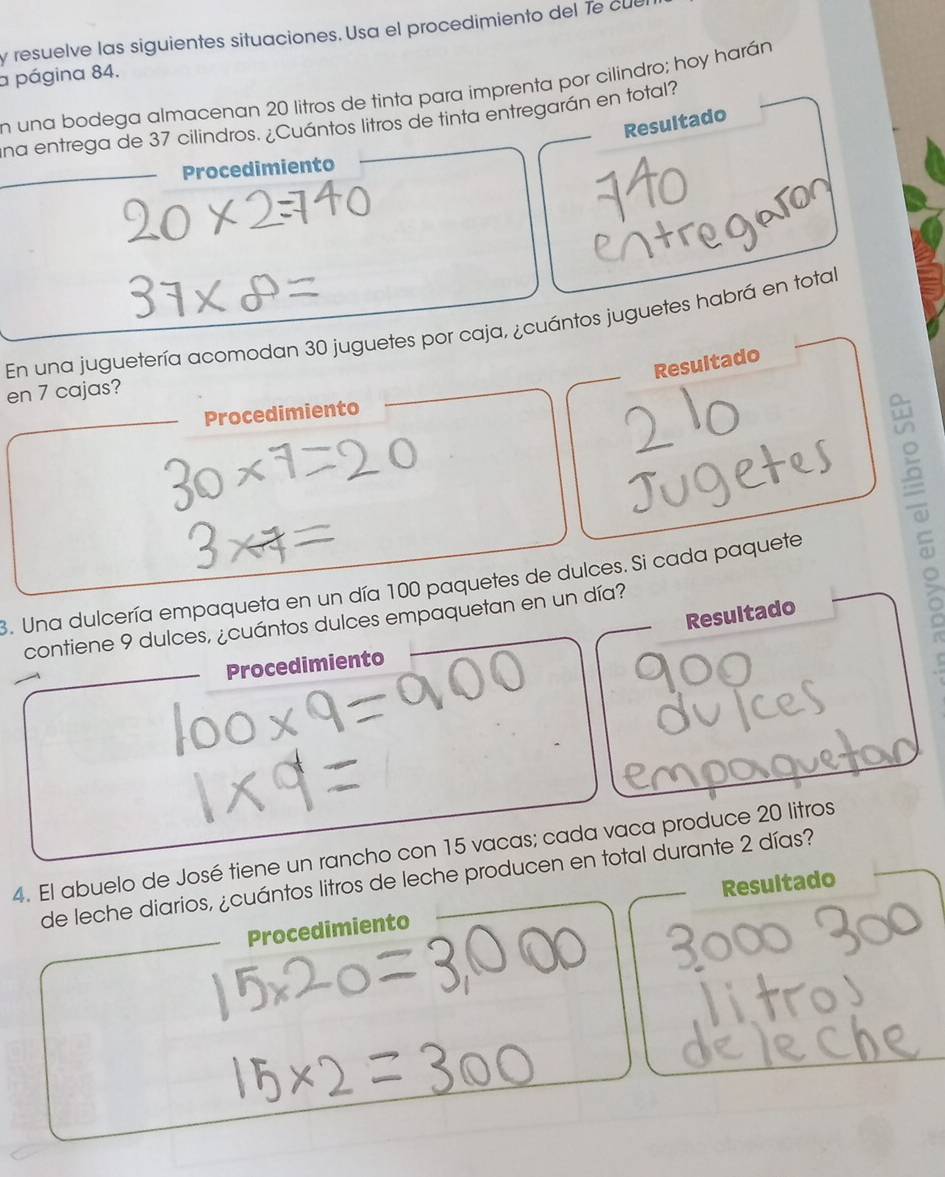 y resuelve las siguientes situaciones. Usa el procedimiento del Te
a página 84.
n una bodega almacenan 20 litros de tinta para imprenta por cilindro; hoy harán
una entrega de 37 cilindros. ¿Cuántos litros de tinta entregarán en total?
Procedimiento
Resultado
20 x 2=740
37 x 8 =
740
entregaron
En una juguetería acomodan 30 juguetes por caja, ¿cuántos juguetes habrá en total
en 7 cajas?
Procedimiento
Resultado
30 x 7 = 20
3 x 7 =
210
Jugetes
3. Una dulcería empaqueta en un día 100 paquetes de dulces. Si cada paquete
contiene 9 dulces, ¿cuántos dulces empaquetan en un día?
Procedimiento
Resultado
100 x 9 = 900
1 x 9 =
900
dulces
empaquetan
4. El abuelo de José tiene un rancho con 15 vacas; cada vaca produce 20 litros
de leche diarios, ¿cuántos litros de leche producen en total durante 2 días?
Procedimiento
Resultado
15 x 20 = 3,000
15 x 2 = 300
3.000 300
litros
de leche
sin apoyo en el libro SEP